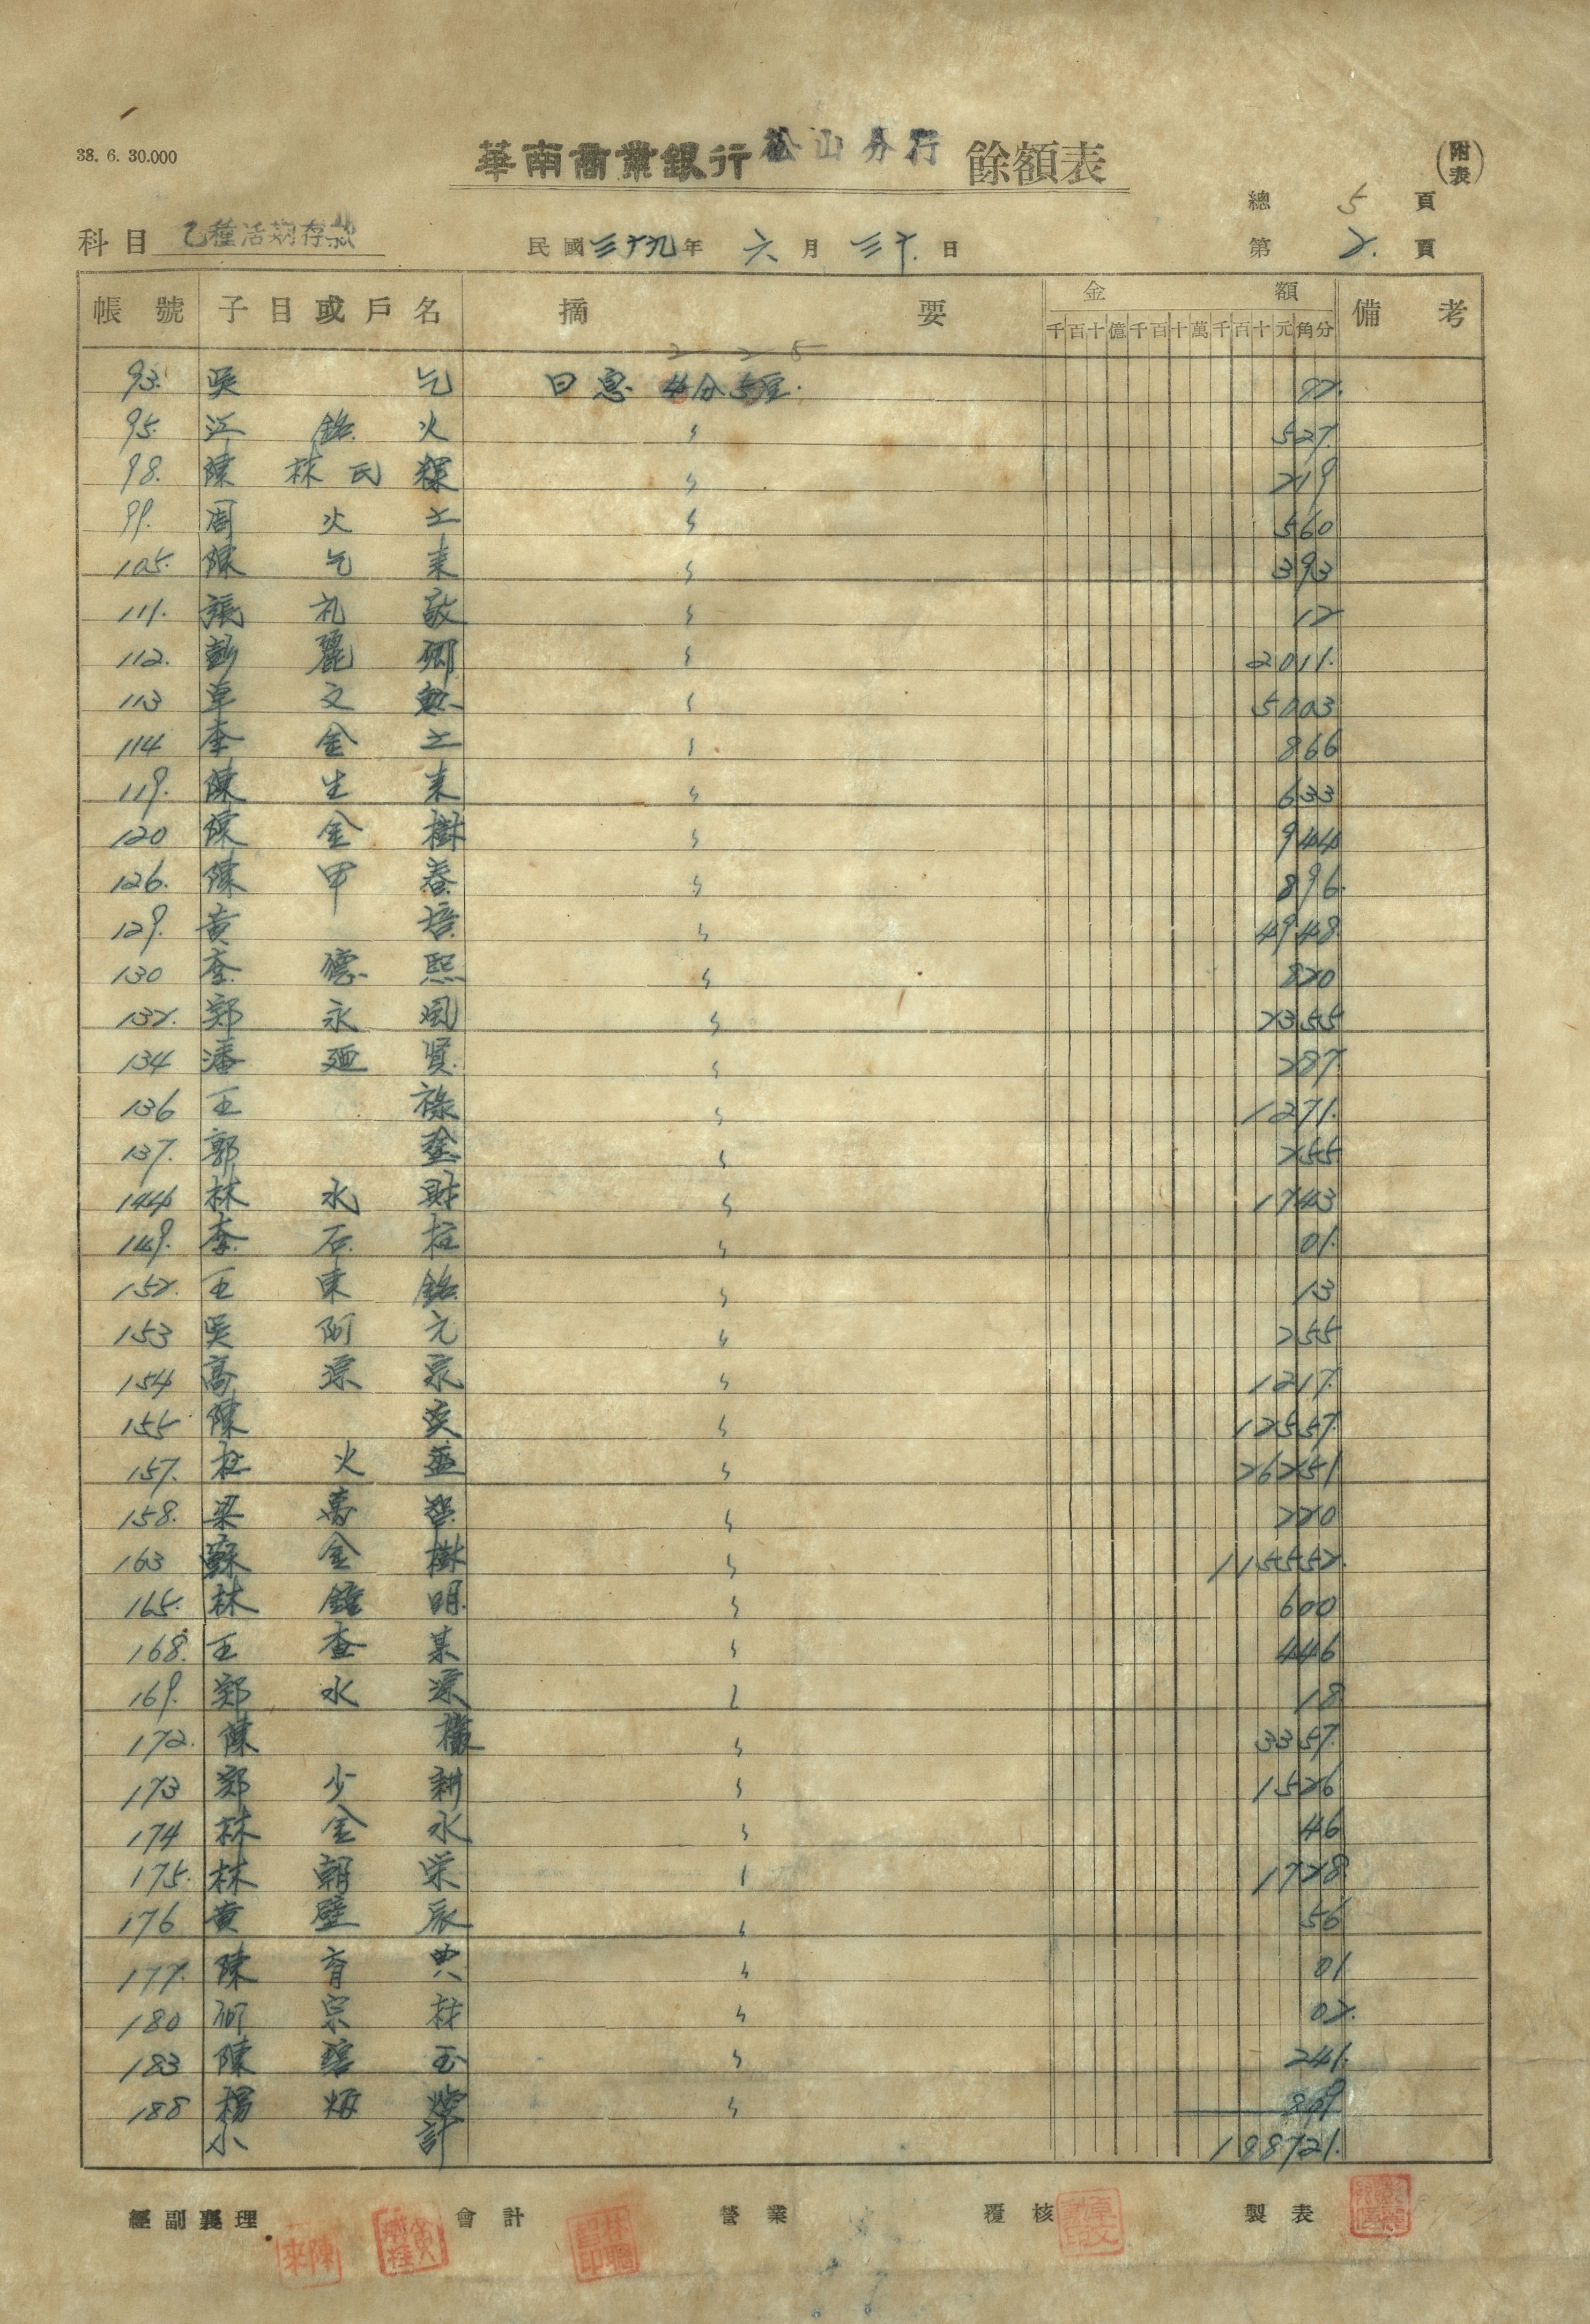 38. 6. 30.000
華南商業銀行 松山分行 餘額表
(附表)
總 5 頁
科目 乙種活期存款 民國 三十九 年 六 月 三十 日 第 2 頁
帳號 子目或戶名 摘要 金額 備考
千百十億千百十萬千百十元角分
2 2 5
93. 吳 乞 日息 4分5厘.
95. 江銘火 〃 527
98. 陳林氏 〃 219
99. 周火土 〃 560
105. 陳乞來 〃 393
111. 張礼敬 〃 12
112. 彭麗卿 〃 2011.
113 卓文勲 〃 5003
114 李金土 〃 866
119. 陳生来 〃 633
120 陳金樹 〃 944
126. 陳甲春 〃 896.
129. 黃 培 〃 4948
130 李德熙 〃 820
132. 鄭永鳳 〃 2355
134 潘廼賢 〃 287
136 王 祿 〃 1271.
137. 郭 〃 255
144 林水財 〃 1743
149. 李石柱 〃 01.
152. 王東銘 〃 13
153 吳阿元 〃 255
154 高源泉 〃 1217.
155 陳 〃 12557.
157. 杜火益 〃 26251
158. 梁壽 〃 220
163 蘇金樹 〃 115552.
165. 林鐘明 〃 600
168. 王查某 〃 446
169. 鄭水源 〃 18
172. 陳 〃 3357.
173 鄭少耕 〃 1526
174 林金水 〃 46
175. 林朝栄 〃 1728
176 黃壁辰 〃 56
177. 陳育典 〃 01
180 何宗材 〃 02.
183 陳碧玉 〃 241.
188 楊 〃 809
小計 198721.
經副襄理 會計 營業 覆核 製表